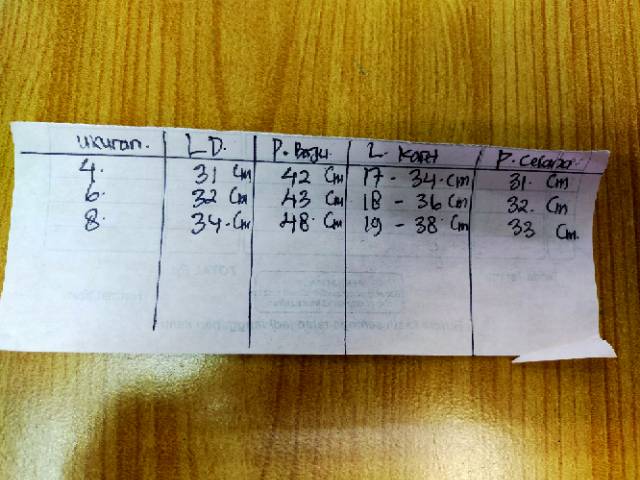 ukuran. LD. P. Baju. L. Karet P. Celana.
4. 31 cm 42 cm 17 - 34 cm 31. cm
6. 32 cm 43 cm 18 - 36 cm 32. cm
8. 34. cm 48. cm 19 - 38 cm 33 cm.
TOTAL Rp.